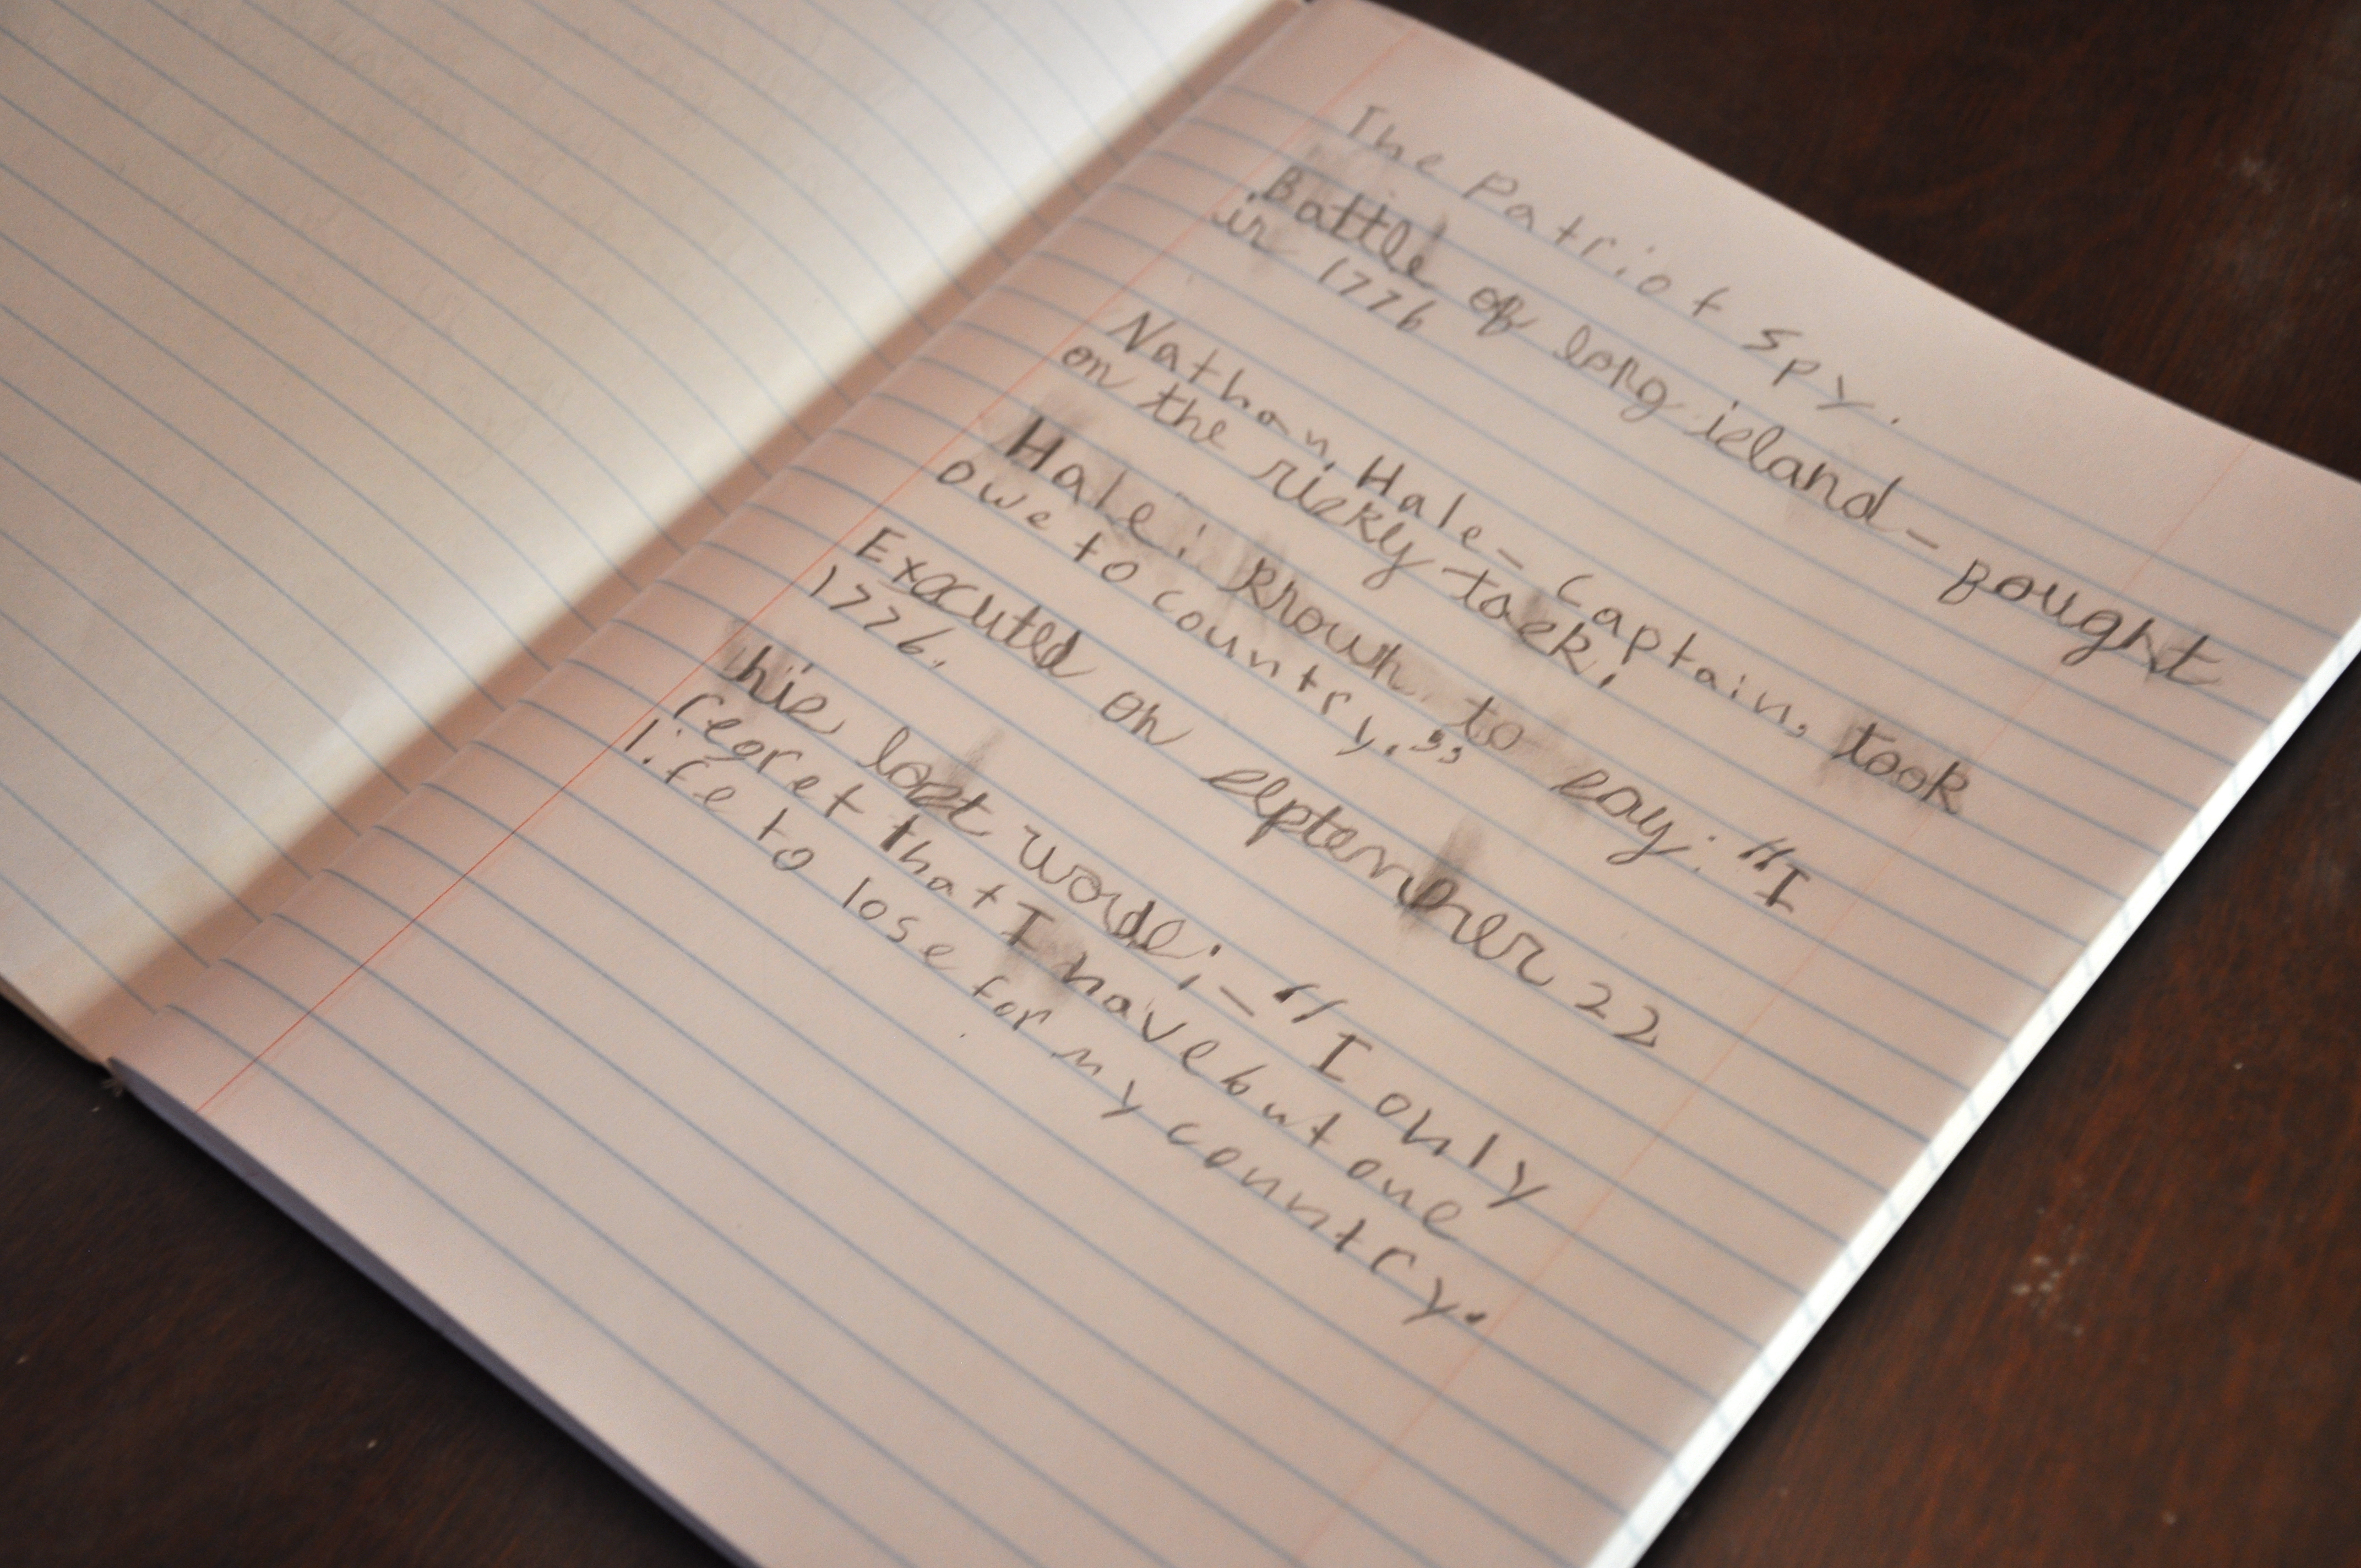 The Patriot spy.
Battle of long island - Fought
in 1776
Nathan Hale - Captain, took
on the risky task.
Hale: known to say: "I
owe to country."
Executed on september 22
1776.
his last words; - "I only
regret that I have but one
life to lose for my country.